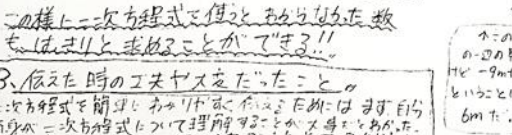 この様に二次方程式を使うとわからなかった数
も、はっきりと求めることができる!!
3、伝えた時の工夫や大変だったこと。
二次方程式を簡単にわかりやすく伝えるためには まず自分
自身が二次方程式について理解することが大事だとわかった。
↑この
の一辺の
けど -9m
ということ
6mだ